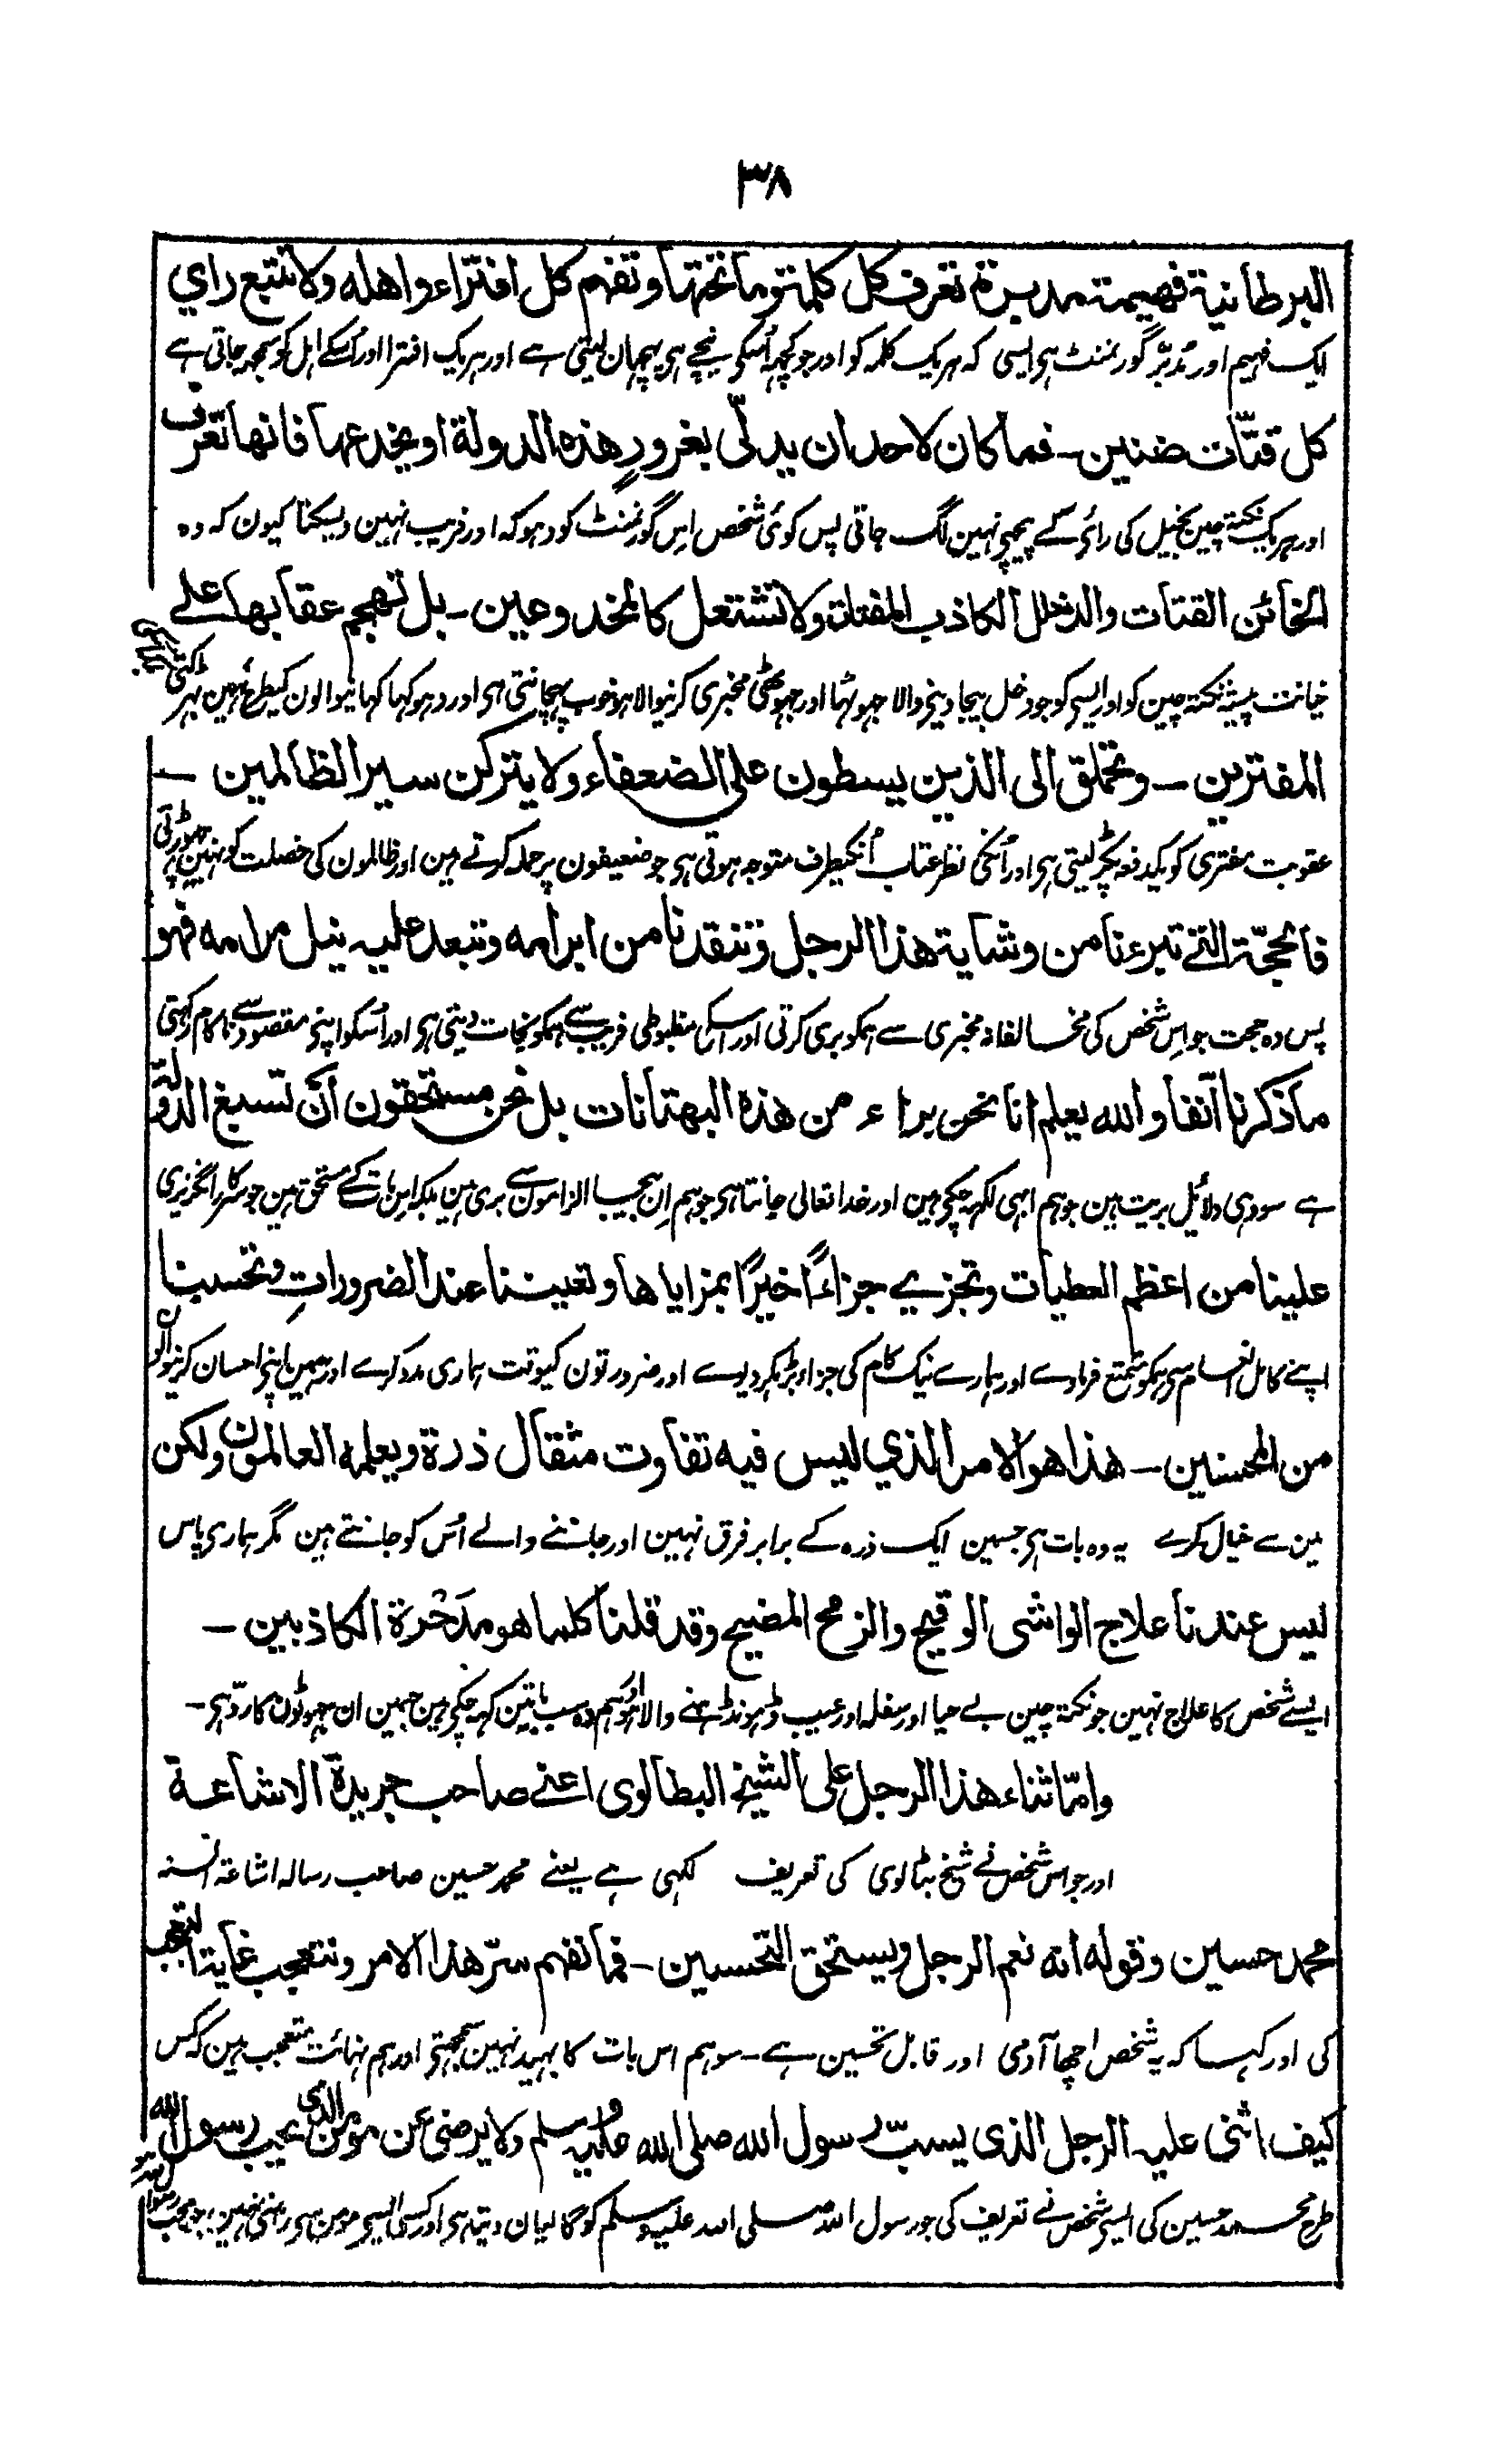 ٣٨
البرطانية فهيمة مدبرة تعرف كل كلمة وما تحتها وتفهم كل افتراء واهله ولا تتبع راي
ایک فہیم اور مُدبّر گورنمنٹ ہی ایسی کہ ہریک کلمہ کو اور جو کچہہ اُسکی نیچے ہی پہچان لیتی ہے اور ہریک افترا اور اُسکے اہل کو سمجھ جاتی ہے
كل قتّات ضنين ـ فما كان لاحد ان يدلّى بغرورٍ هذه الدولة او يخدعها فانها تعرف
اور ہریک نکتہ چین بخیل کی رائی کے پیچہی نہین لگ جاتی پس کوئی شخص اِس گورنمنٹ کو دہوکہ اور فریب نہین دیسکتا کیون کہ وہ
الخائن القتات والدخلل الكاذب المفتات ولا تشتعل كالمخدوعين ـ بل تهجم عقابها على
خیانت پیشہ نکتہ چین کو اور ایسی کو جو دخل بیجا دینی والا جہوٹہا اور جہوٹھی مخبری کرنیوالا ہو خوب پہچانتی ہی اور دہوکہا کہانیوالون کیطرح نہین بہڑکتی
المفترين ـ وتحملق الى الذين يسطون على الضعفاء ولا يتركن سير الظالمين ـ
عقوبت مفتری کو یکدفعہ پکڑ لیتی ہی اور اُسکی نظر عتاب اُنکیطرف متوجہ ہوتی ہی جو ضعیفون پر حملہ کرتے ہین اور ظالمون کی خصلت کو نہین چہوڑتی
فالحجّة التي تبرءنا من وشاية هذا الرجل وتنقدنا من ابرامه وتبعد عليه نيل مرامه فهو
پس وہ حجت جو اِس شخص کی مخالفانہ مخبری سے ہمکو بری کرتی اور اسکی مضبوطی فریب سے ہمکو نجات دیتی ہی اور اُسکو اپنی مقصود سے ناکام رکہتی
ما ذكرنا آنفا والله يعلم انا نحن براء من هذه البهتانات بل نحن مستحقون ان تسبغ الدولة
ہے سو وہی دلائیل بریت ہین جو ہم ابہی لکہہ چکی ہین اور خدا تعالی جانتا ہی جو ہم اِن بیجا الزامون سے بری ہین بلکہ اِس بات کے مستحق ہین جو سرکار انگریزی
علينا من اعظم العطيات وتجزي جزاءً خيرًا بمزاياها وتعيننا عند الضروراتِ وتحسبنا
اپنے کامل انعام سی ہمکو متمتع فرماوے اور ہمارے نیک کام کی جزا بڑہکر دیوے اور ضرورتون کیوقت ہماری مدد کرے اور ہمین اپنی احسان کرنیوالون
من المحسنين ـ هذا هو الامر الذي ليس فيه تفاوت مثقال ذرة ويعلمه العالمون ولكن
مین سے خیال کرے یہ وہ بات ہی جسمین ایک ذرہ کے برابر فرق نہین اور جاننے والے اُس کو جانتے ہین مگر ہماری پاس
ليس عندنا علاج الواشى الوقيح والزمح المضيح وقد قلنا كلما هو مدحرة الكاذبين ـ
ایسے شخص کا علاج نہین جو نکتہ چین بے حیا اور سفلہ اور عیب ڈہونڈہنے والا ہو اور ہم وہ سب باتین کہہ چکی ہین جسمین ان جہوٹون کا ردّ ہی ـ
وامّا ثناء هذا الرجل على الشيخ البطالوى اعنى صاحب جريدة الاشاعة
اور جو اس شخص نے شیخ بٹالوی کی تعریف لکہی ہے یعنے محمد حسین صاحب رسالہ اشاعۃ السنہ
محمد حسين وقوله انه نعم الرجل ويستحق التحسين ـ فما نفهم سرّ هذا الامر ونتعجب غاية التعجب
کی اور کہا کہ یہ شخص اچہا آدمی اور قابل تحسین ہے ـ سو ہم اس بات کا بہید نہین سمجہتی اور ہم نہائت متعجب ہین کہ کس
كيف اثنى عليه الرجل الذى يسبّ رسول الله صلى الله عليه وسلم ولا يرضى عن مؤمن الذي يحب رسول الله
طرح محمد حسین کی ایسی شخص نے تعریف کی جو رسول اللہ صلی اللہ علیہ وسلم کو گالیان دیتا ہی اور کسی ایسی مومن سی راضی نہین جو محب رسول